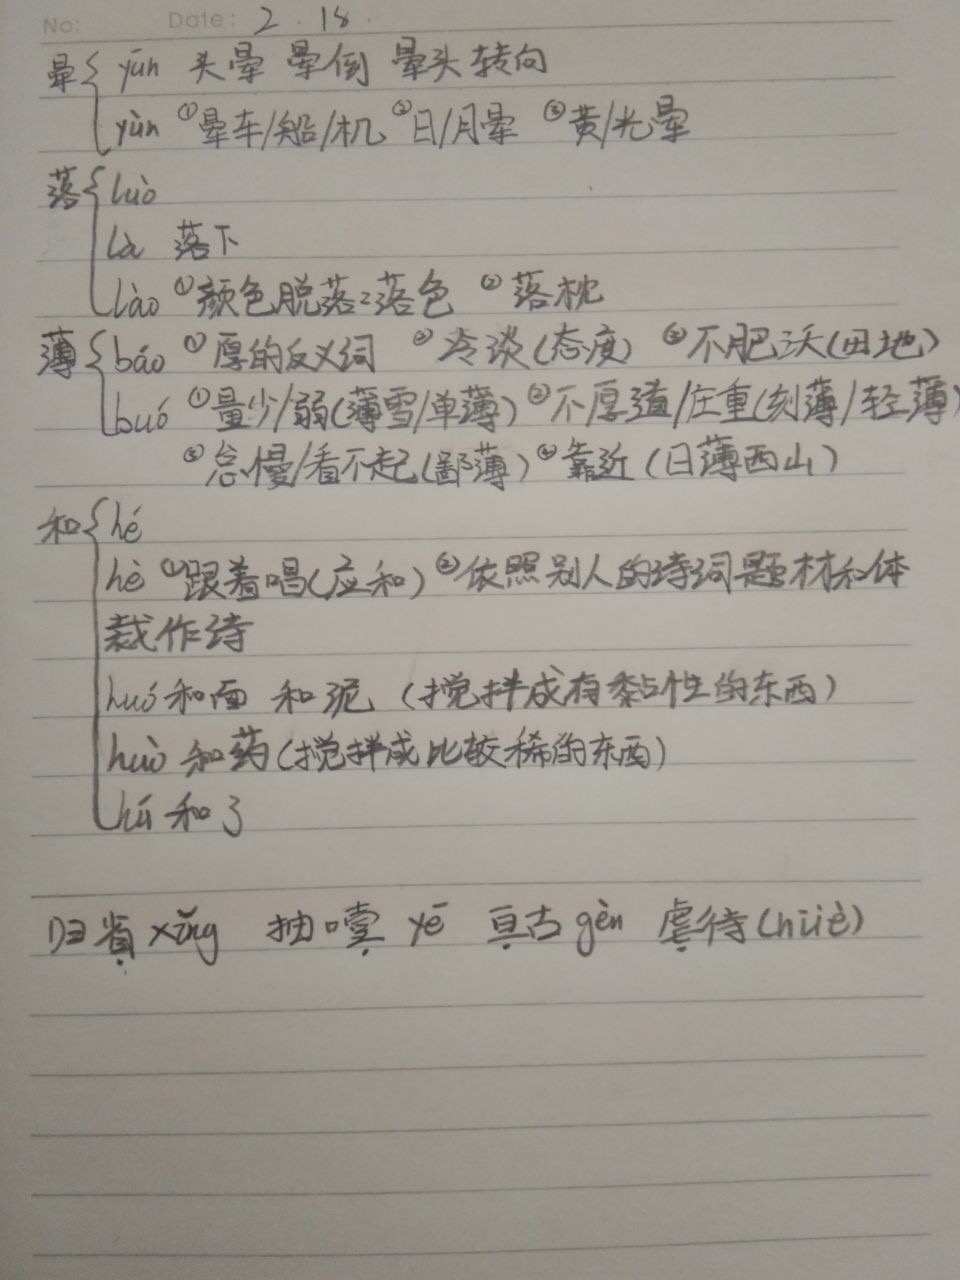 No: Date: 2.18.
晕 yūn 头晕 晕倒 晕头转向
yùn ①晕车/船/机 ②日/月晕 ③黄/光晕
落 luò
là 落下
lào ①颜色脱落:落色 ②落枕
薄 báo ①厚的反义词 ②冷谈(态度) ③不肥沃(田地)
buó ①量少/弱(薄雪/单薄) ②不厚道/庄重(刻薄/轻薄)
③怠慢/看不起(鄙薄) ④靠近(日薄西山)
和 hé
hè ①跟着唱(应和) ②依照别人的诗词题材和体
裁作诗
huó 和面 和泥 (搅拌成有黏性的东西)
huò 和药(搅拌成比较稀的东西)
hú 和了
归省 xǐng 抽噎 yē 亘古 gèn 虐待(nüè)